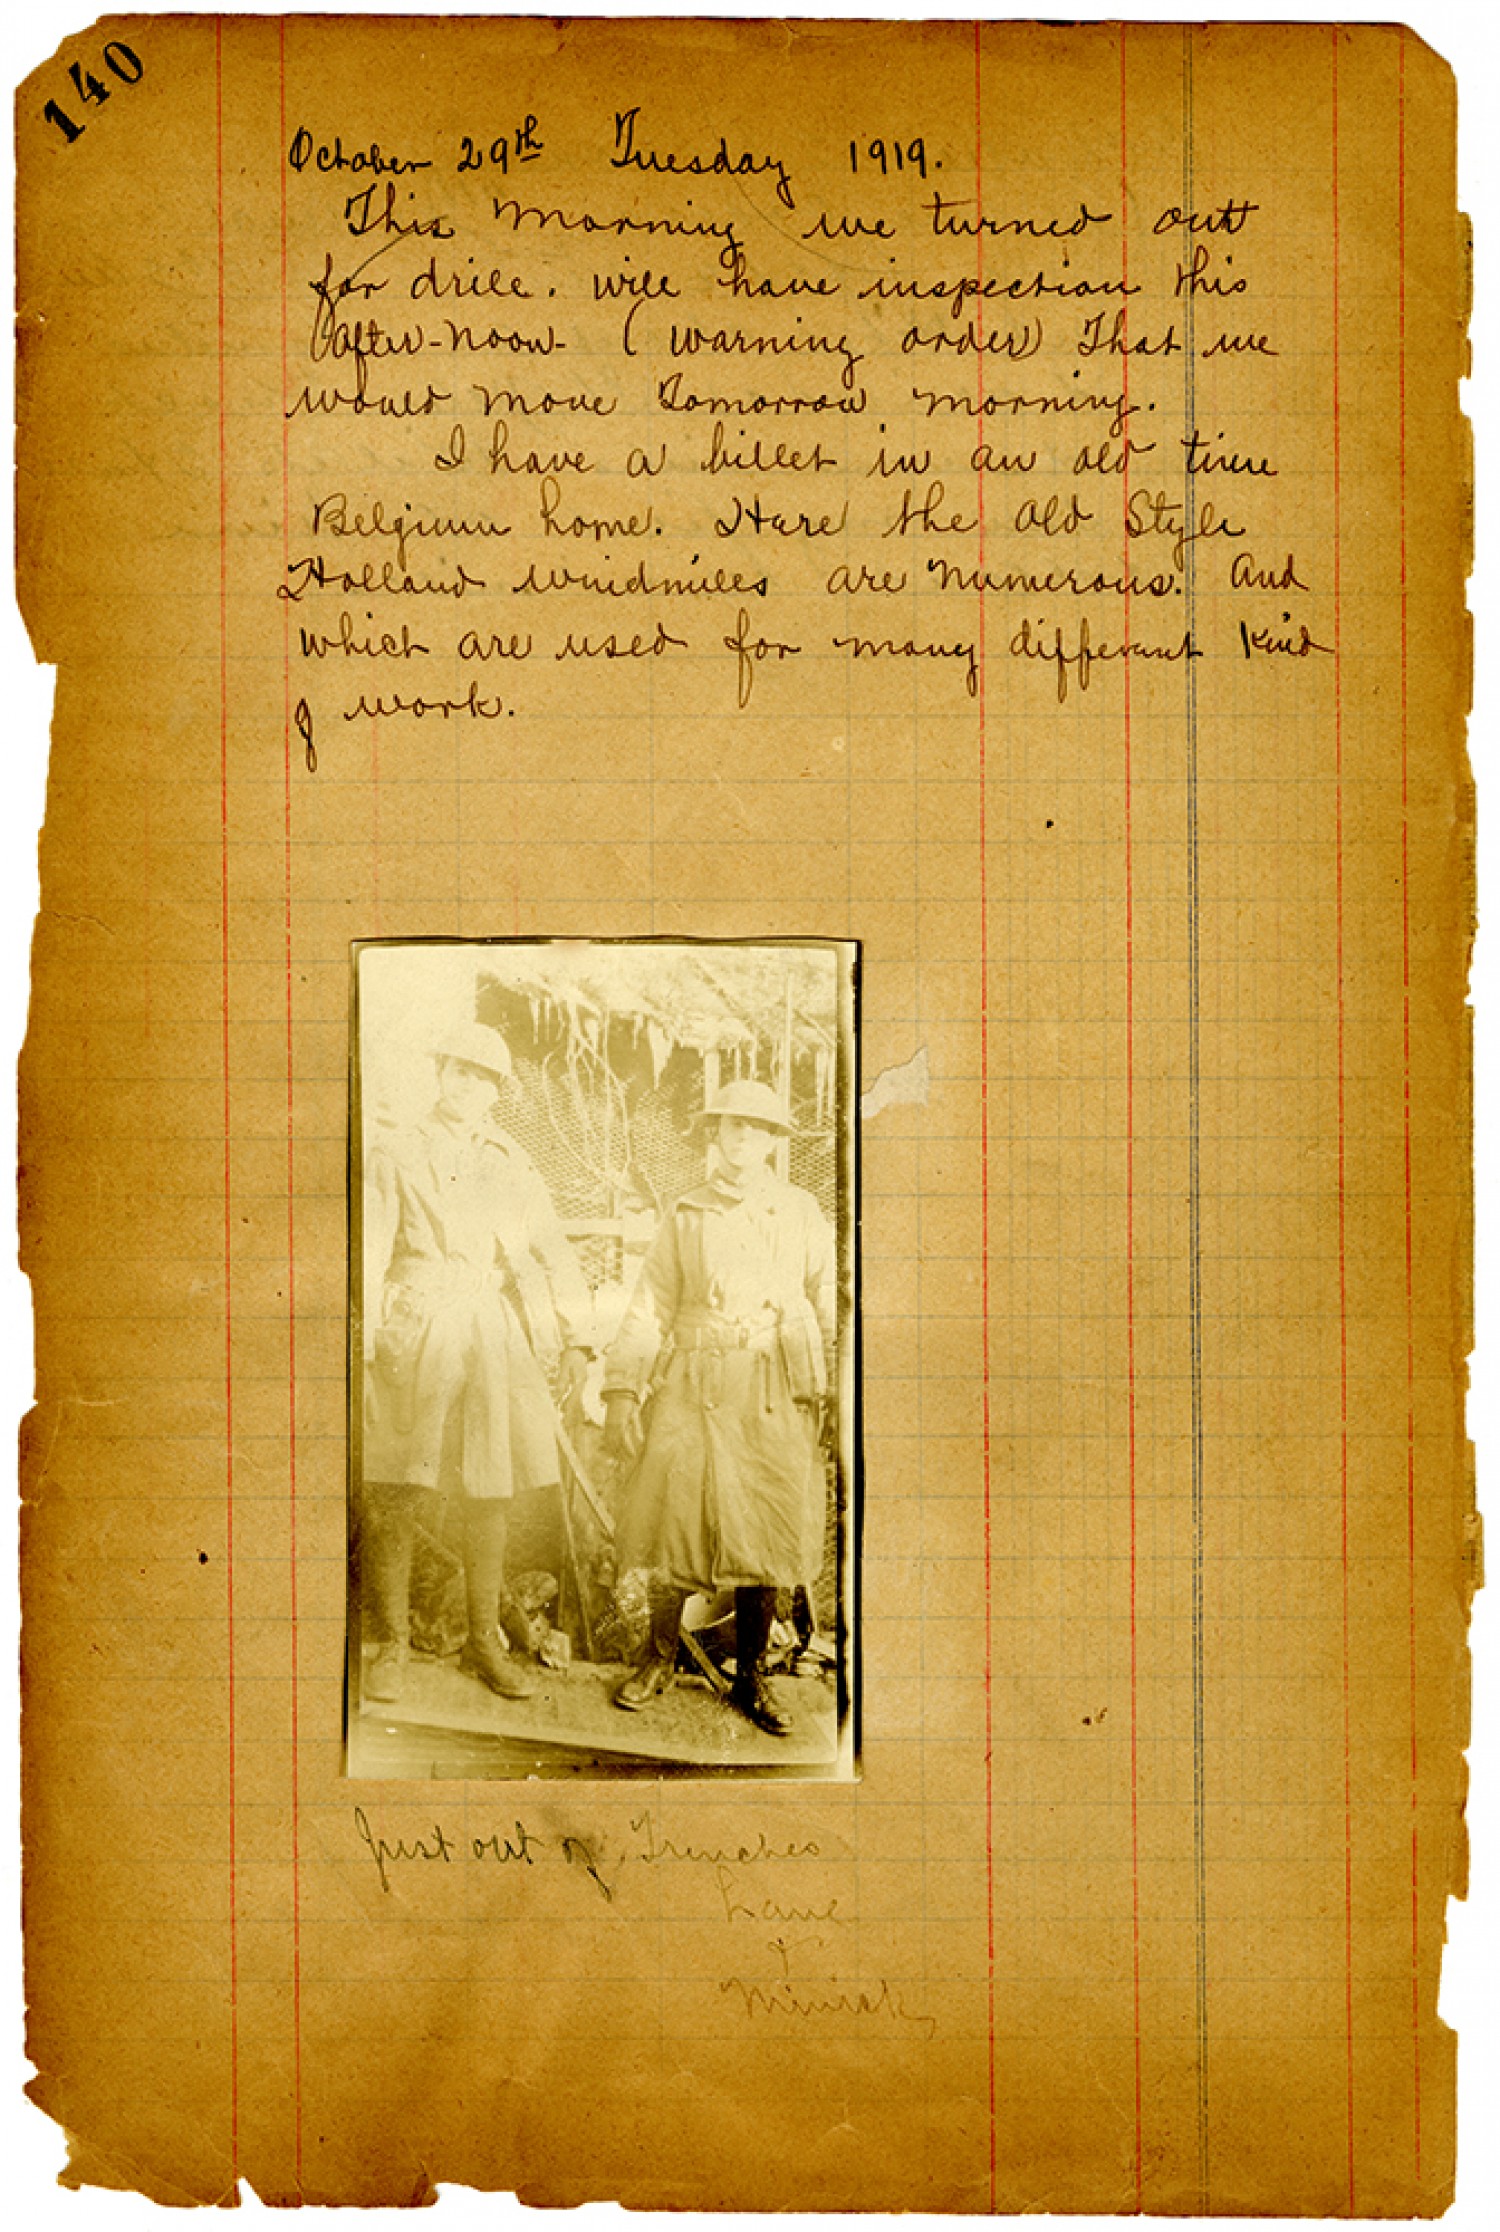 140
October 29th Tuesday 1919.
This Morning we turned out
for drill. will have inspection this
after-noon- (warning order) That we
would move Tomorrow morning.
I have a billet in an old time
Belgium home. Here the old Style
Holland windmills are numerous. And
which are used for many different kind
of work.
Just out of Trenches
Lane
&
Minick